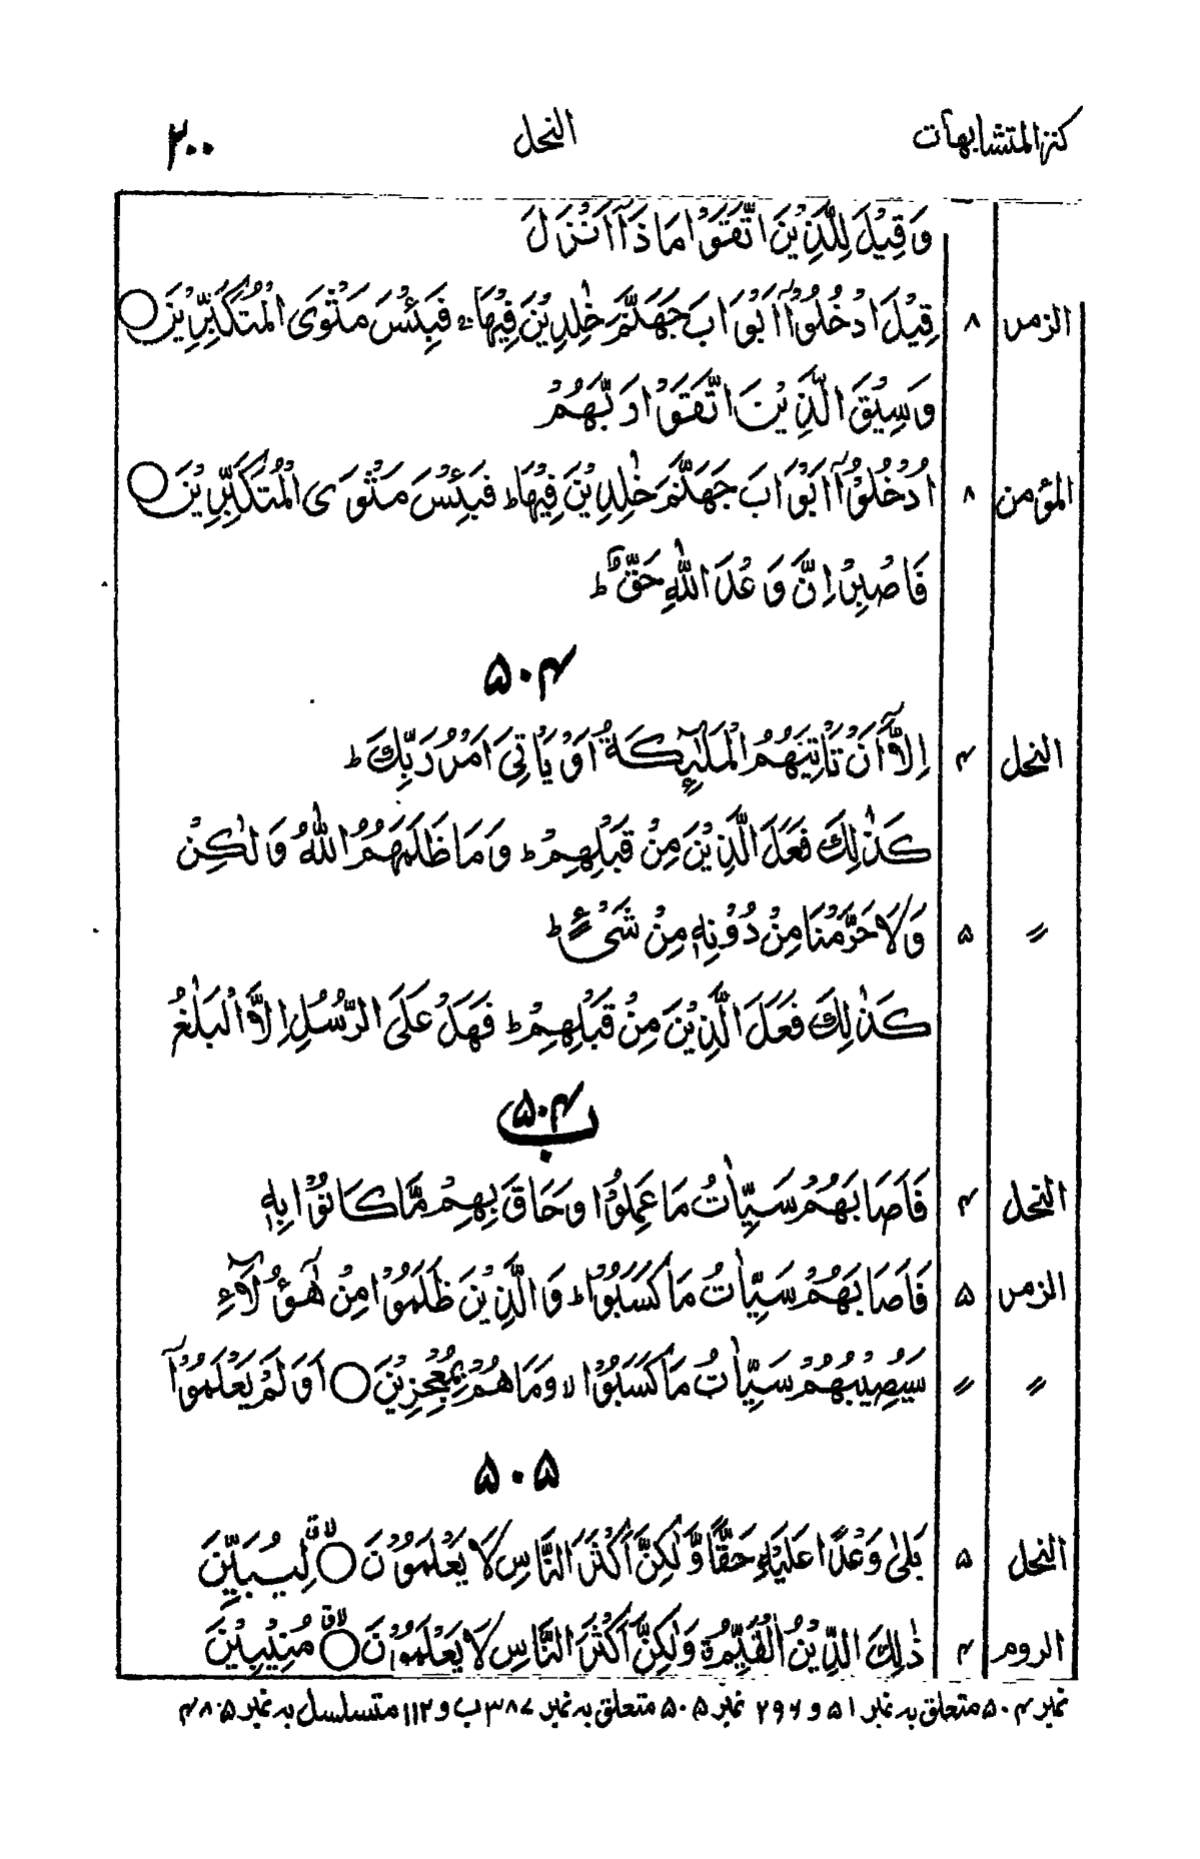 كنز المتشابهات النحل ۲۰۰
وَقِيْلَ لِلَّذِيْنَ اتَّقَوْا مَاذَآ اَنْزَلَ
الزمر ۸ قِيْلَ ادْخُلُوْٓا اَبْوَابَ جَهَنَّمَ خٰلِدِيْنَ فِيْهَا ۚ فَبِئْسَ مَثْوَى الْمُتَكَبِّرِيْنَ ○
وَسِيْقَ الَّذِيْنَ اتَّقَوْا رَبَّهُمْ
المؤمن ۸ اُدْخُلُوْٓا اَبْوَابَ جَهَنَّمَ خٰلِدِيْنَ فِيْهَا ؕ فَبِئْسَ مَثْوَى الْمُتَكَبِّرِيْنَ ○
فَاصْبِرْ اِنَّ وَعْدَ اللّٰهِ حَقٌّ ؕ
۵۰۴
النحل ۴ اِلَّآ اَنْ تَاْتِيَهُمُ الْمَلٰٓئِكَةُ اَوْ يَاْتِيَ اَمْرُ رَبِّكَ ؕ
كَذٰلِكَ فَعَلَ الَّذِيْنَ مِنْ قَبْلِهِمْ ؕ وَمَا ظَلَمَهُمُ اللّٰهُ وَلٰكِنْ
〃 ۵ وَلَا حَرَّمْنَا مِنْ دُوْنِهٖ مِنْ شَيْءٍ ؕ
كَذٰلِكَ فَعَلَ الَّذِيْنَ مِنْ قَبْلِهِمْ ؕ فَهَلْ عَلَى الرُّسُلِ اِلَّا الْبَلٰغُ
۵۰۴ ب
النحل ۴ فَاَصَابَهُمْ سَيِّاٰتُ مَا عَمِلُوْا وَحَاقَ بِهِمْ مَّا كَانُوْا بِهٖ
الزمر ۵ فَاَصَابَهُمْ سَيِّاٰتُ مَا كَسَبُوْا ؕ وَالَّذِيْنَ ظَلَمُوْا مِنْ هٰٓؤُلَآءِ
〃 〃 سَيُصِيْبُهُمْ سَيِّاٰتُ مَا كَسَبُوْا ۙ وَمَا هُمْ بِمُعْجِزِيْنَ ○ اَوَلَمْ يَعْلَمُوْٓا
۵۰۵
النحل ۵ بَلٰى وَعْدًا عَلَيْهِ حَقًّا وَّلٰكِنَّ اَكْثَرَ النَّاسِ لَا يَعْلَمُوْنَ ○ لِيُبَيِّنَ
الروم ۴ ذٰلِكَ الدِّيْنُ الْقَيِّمُ وَلٰكِنَّ اَكْثَرَ النَّاسِ لَا يَعْلَمُوْنَ ○ مُنِيْبِيْنَ
نمبر ۵۰۴ متعلق بہ نمبر ۵۱ و ۲۹۶ نمبر ۵۰۵ متعلق بہ نمبر ۳۸۷ ب و ۱۱۲ متسلسل بہ نمبر ۴۸۰۵